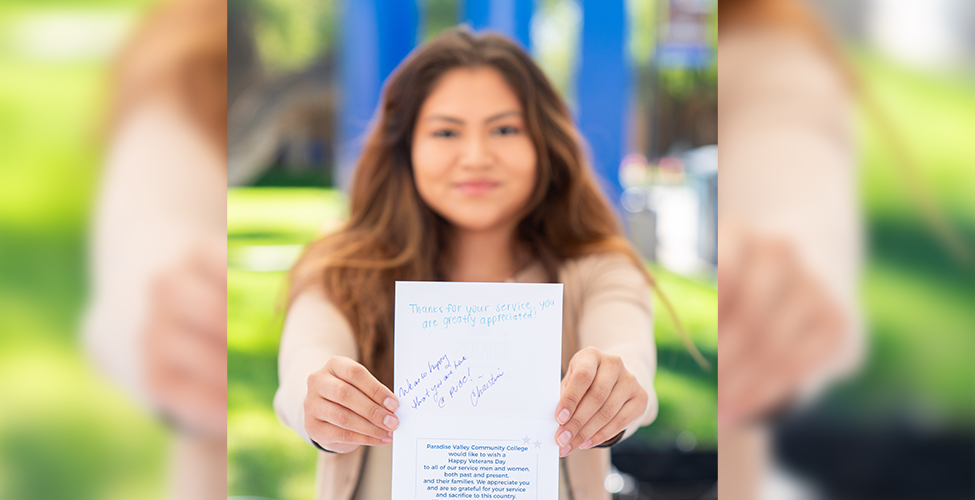 Thanks for your service, you
are greatly appreciated!
We are so happy
that you are here
@ PVCC!
~ Christina
Paradise Valley Community College
would like to wish a
Happy Veterans Day
to all of our service men and women,
both past and present,
and their families. We appreciate you
and are so grateful for your service
and sacrifice to this country.